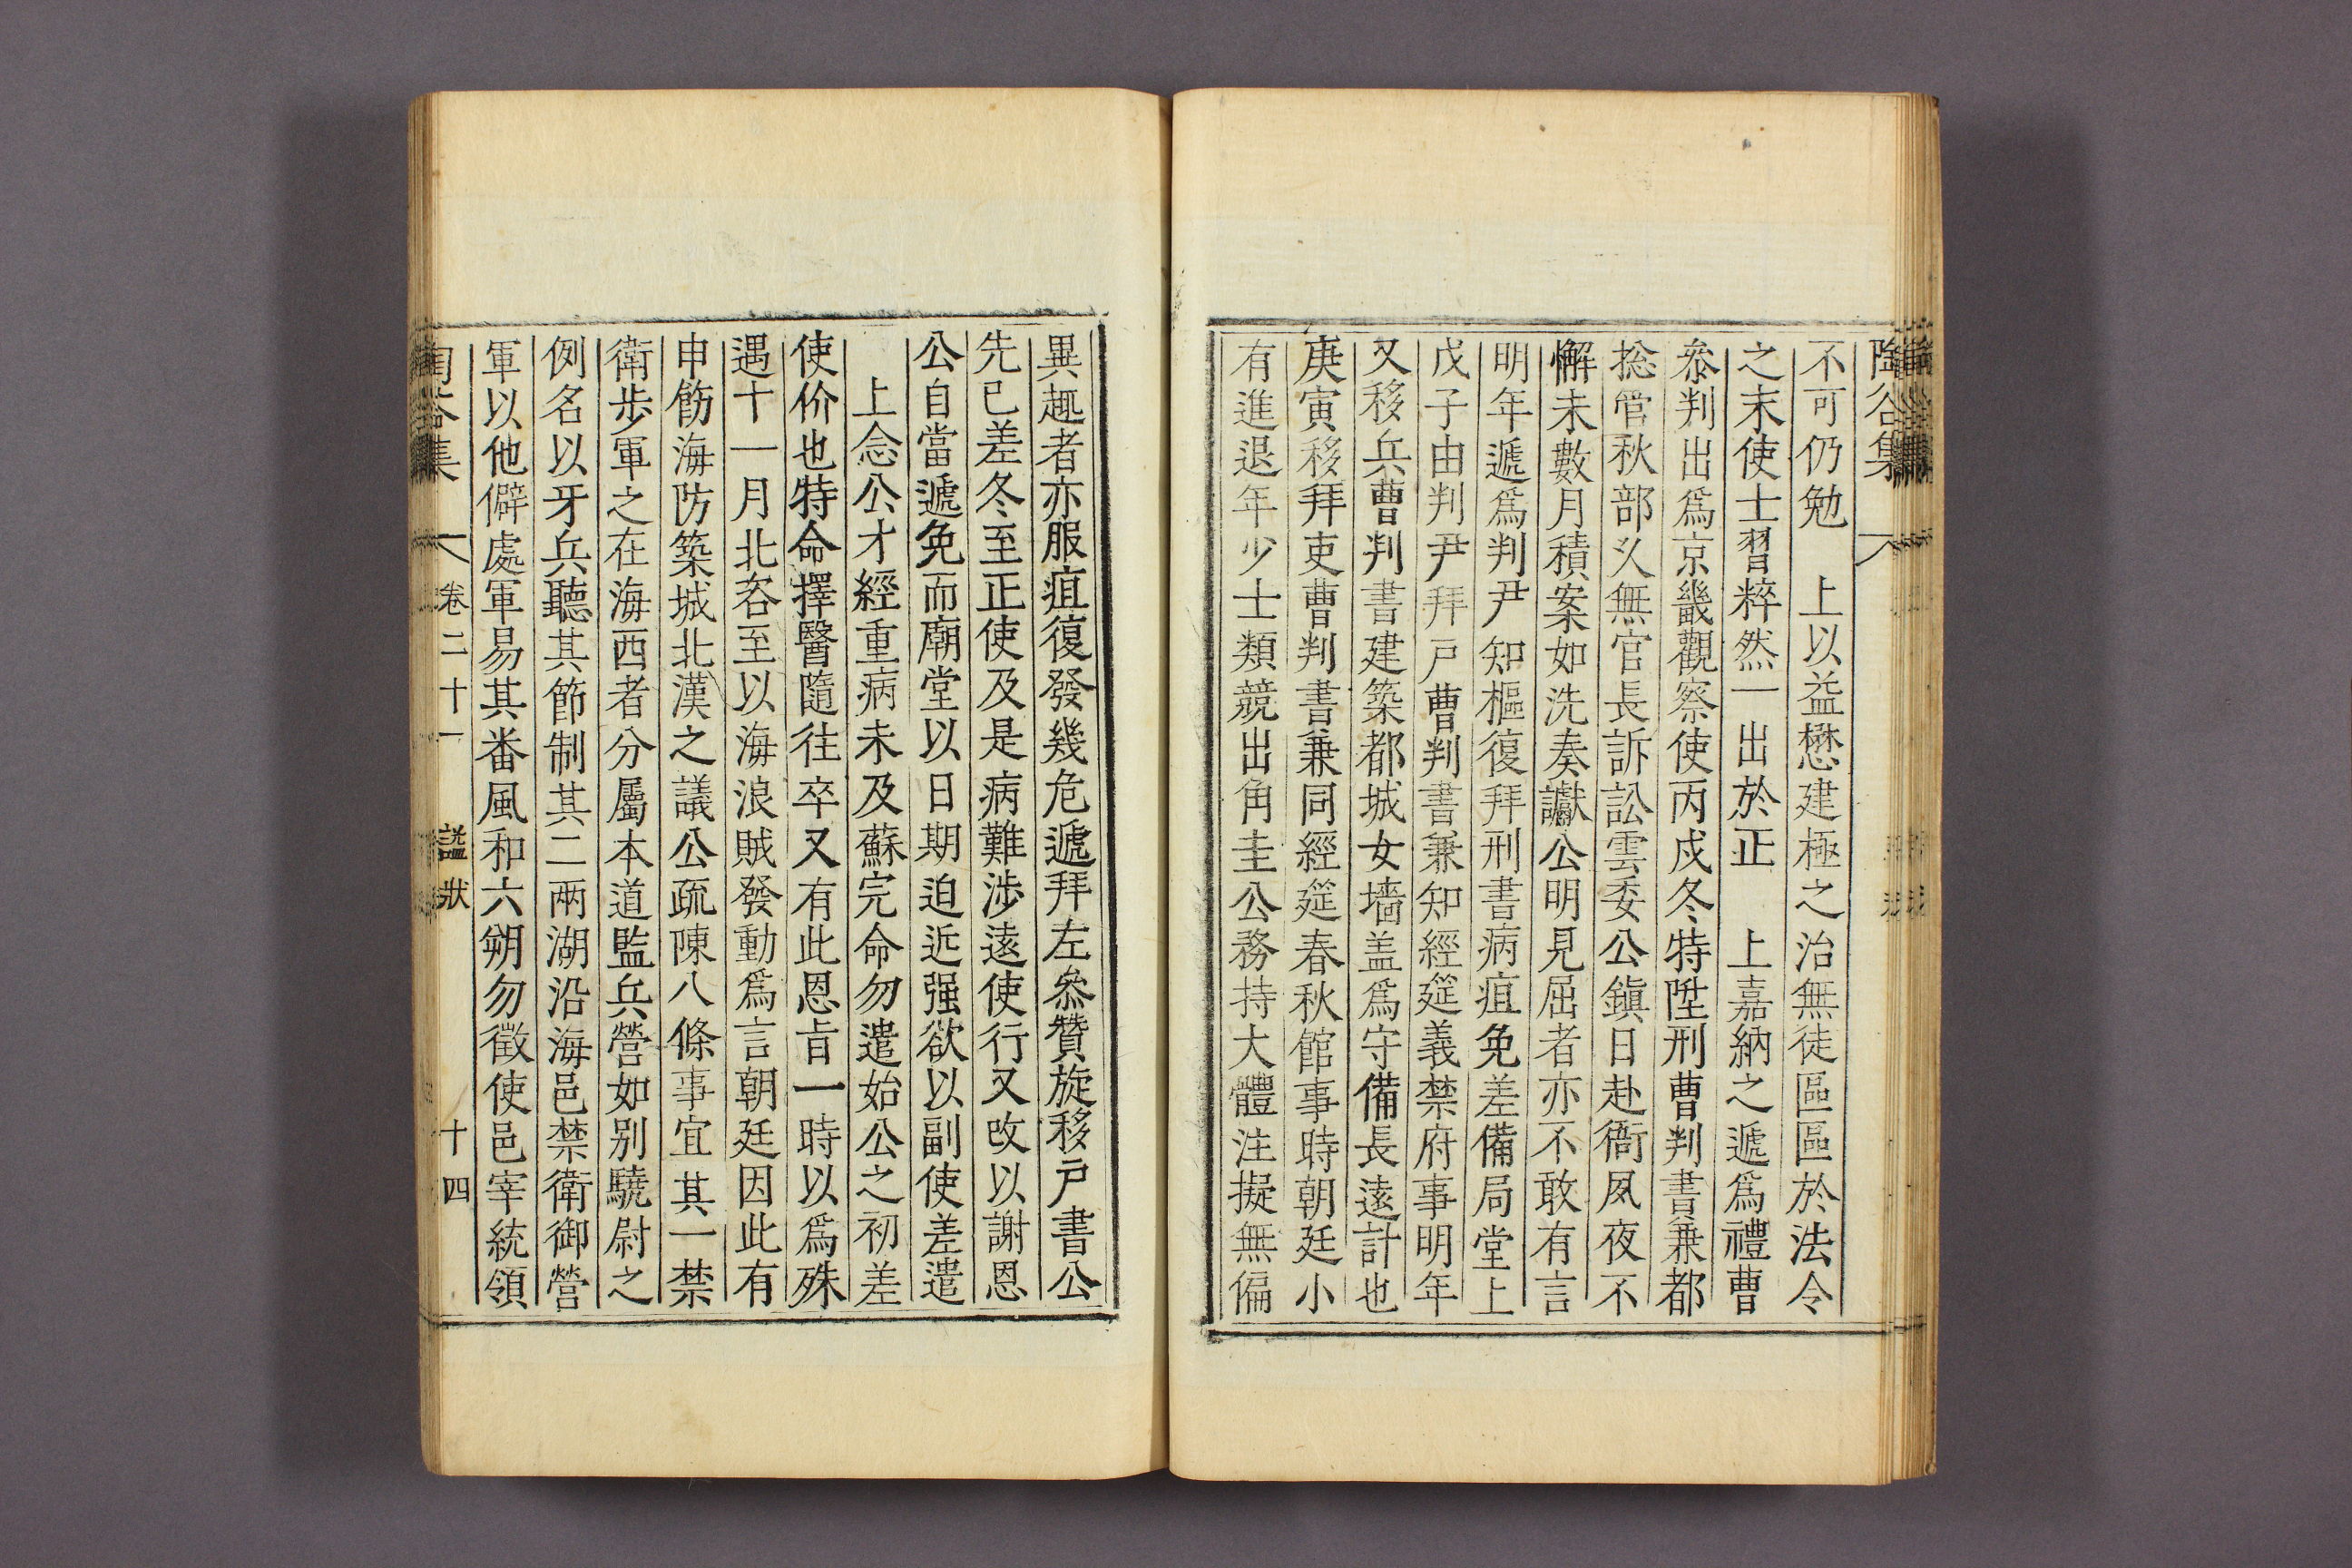 陶谷集
不可仍勉　上以益懋建極之治無徒區區於法令
之末使士習粹然一出於正　上嘉納之遞爲禮曹
叅判出爲京畿觀察使丙戌冬特陞刑曹判書兼都
捴管秋部久無官長訴訟雲委公鎭日赴衙夙夜不
懈未數月積案如洗奏讞公明見屈者亦不敢有言
明年遞爲判尹知樞復拜刑書病疽免差備局堂上
戊子由判尹拜戶曹判書兼知經筵義禁府事明年
又移兵曹判書建築都城女墻盖爲守備長遠計也
庚寅移拜吏曹判書兼同經筵春秋館事時朝廷小
有進退年少士類競出角圭公務持大體注擬無偏
異趣者亦服疽復發幾危遞拜左叅贊旋移戶書公
先已差冬至正使及是病難涉遠使行又改以謝恩
公自當遞免而廟堂以日期迫近强欲以副使差遣
上念公才經重病未及蘇完命勿遣始公之初差
使价也特命擇醫隨往卒又有此恩旨一時以爲殊
遇十一月北咨至以海浪賊發動爲言朝廷因此有
申飭海防築城北漢之議公疏陳八條事宜其一禁
衛步軍之在海西者分屬本道監兵營如別驍尉之
例名以牙兵聽其節制其二兩湖沿海邑禁衛御營
軍以他僻處軍易其番風和六朔勿徵使邑宰統領
陶谷集　卷二十一　諡狀　十四